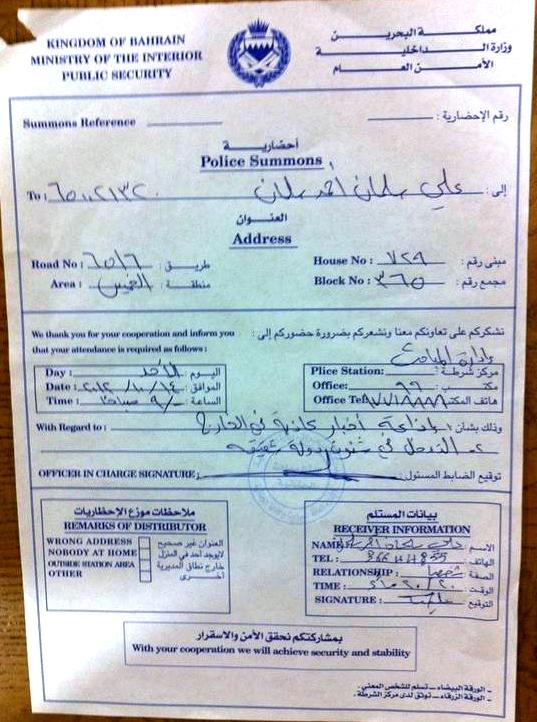 KINGDOM OF BAHRAIN
MINISTRY OF THE INTERIOR
PUBLIC SECURITY
مملكة البحرين
وزارة الداخلية
الأمن العام
Summons Reference
رقم الإحضارية :
أحضارية
Police Summons
To : إلى : علي سلمان أحمد سلمان
العنوان
Address
Road No : طريق :
House No : ٧٢٩ مبنى رقم :
Area : الخميس منطقة :
Block No : ٣٦٥ مجمع رقم :
We thank you for your cooperation and inform you
that your attendance is required as follows :
نشكركم على تعاونكم معنا ونشعركم بضرورة حضوركم إلى :
Day : الأحد اليوم :
Date : الموافق :
Time : ٩/- صباحاً الساعة :
إدارة المباحث
Plice Station: مركز شرطة :
Office: ٦٦ مكتب :
Office Tel هاتف المكتب
With Regard to : وذلك بشأن : ١- إذاعة أخبار كاذبة في الخارج
٢- التدخل في شئون دولة شقيقه
OFFICER IN CHARGE SIGNATURE : توقيع الضابط المسئول :
ملاحظات موزع الإحظاريات
REMARKS OF DISTRIBUTOR
WRONG ADDRESS العنوان غير صحيح
NOBODY AT HOME لايوجد أحد في المنزل
OUTSIDE STATION AREA خارج نطاق المديرية
OTHER أخرى
بيانات المستلم
RECEIVER INFORMATION
NAME الاسم
TEL : الهاتف :
RELATIONSHIP : الصفة :
TIME : الوقت :
SIGNATURE : التوقيع
بمشاركتكم نحقق الأمن والاسقرار
With your cooperation we will achieve security and stability
ـ الورقة البيضاء ـ تسلم للشخص المعني.
ـ الورقة الزرقاء ـ توثق لدى مركز الشرطة.